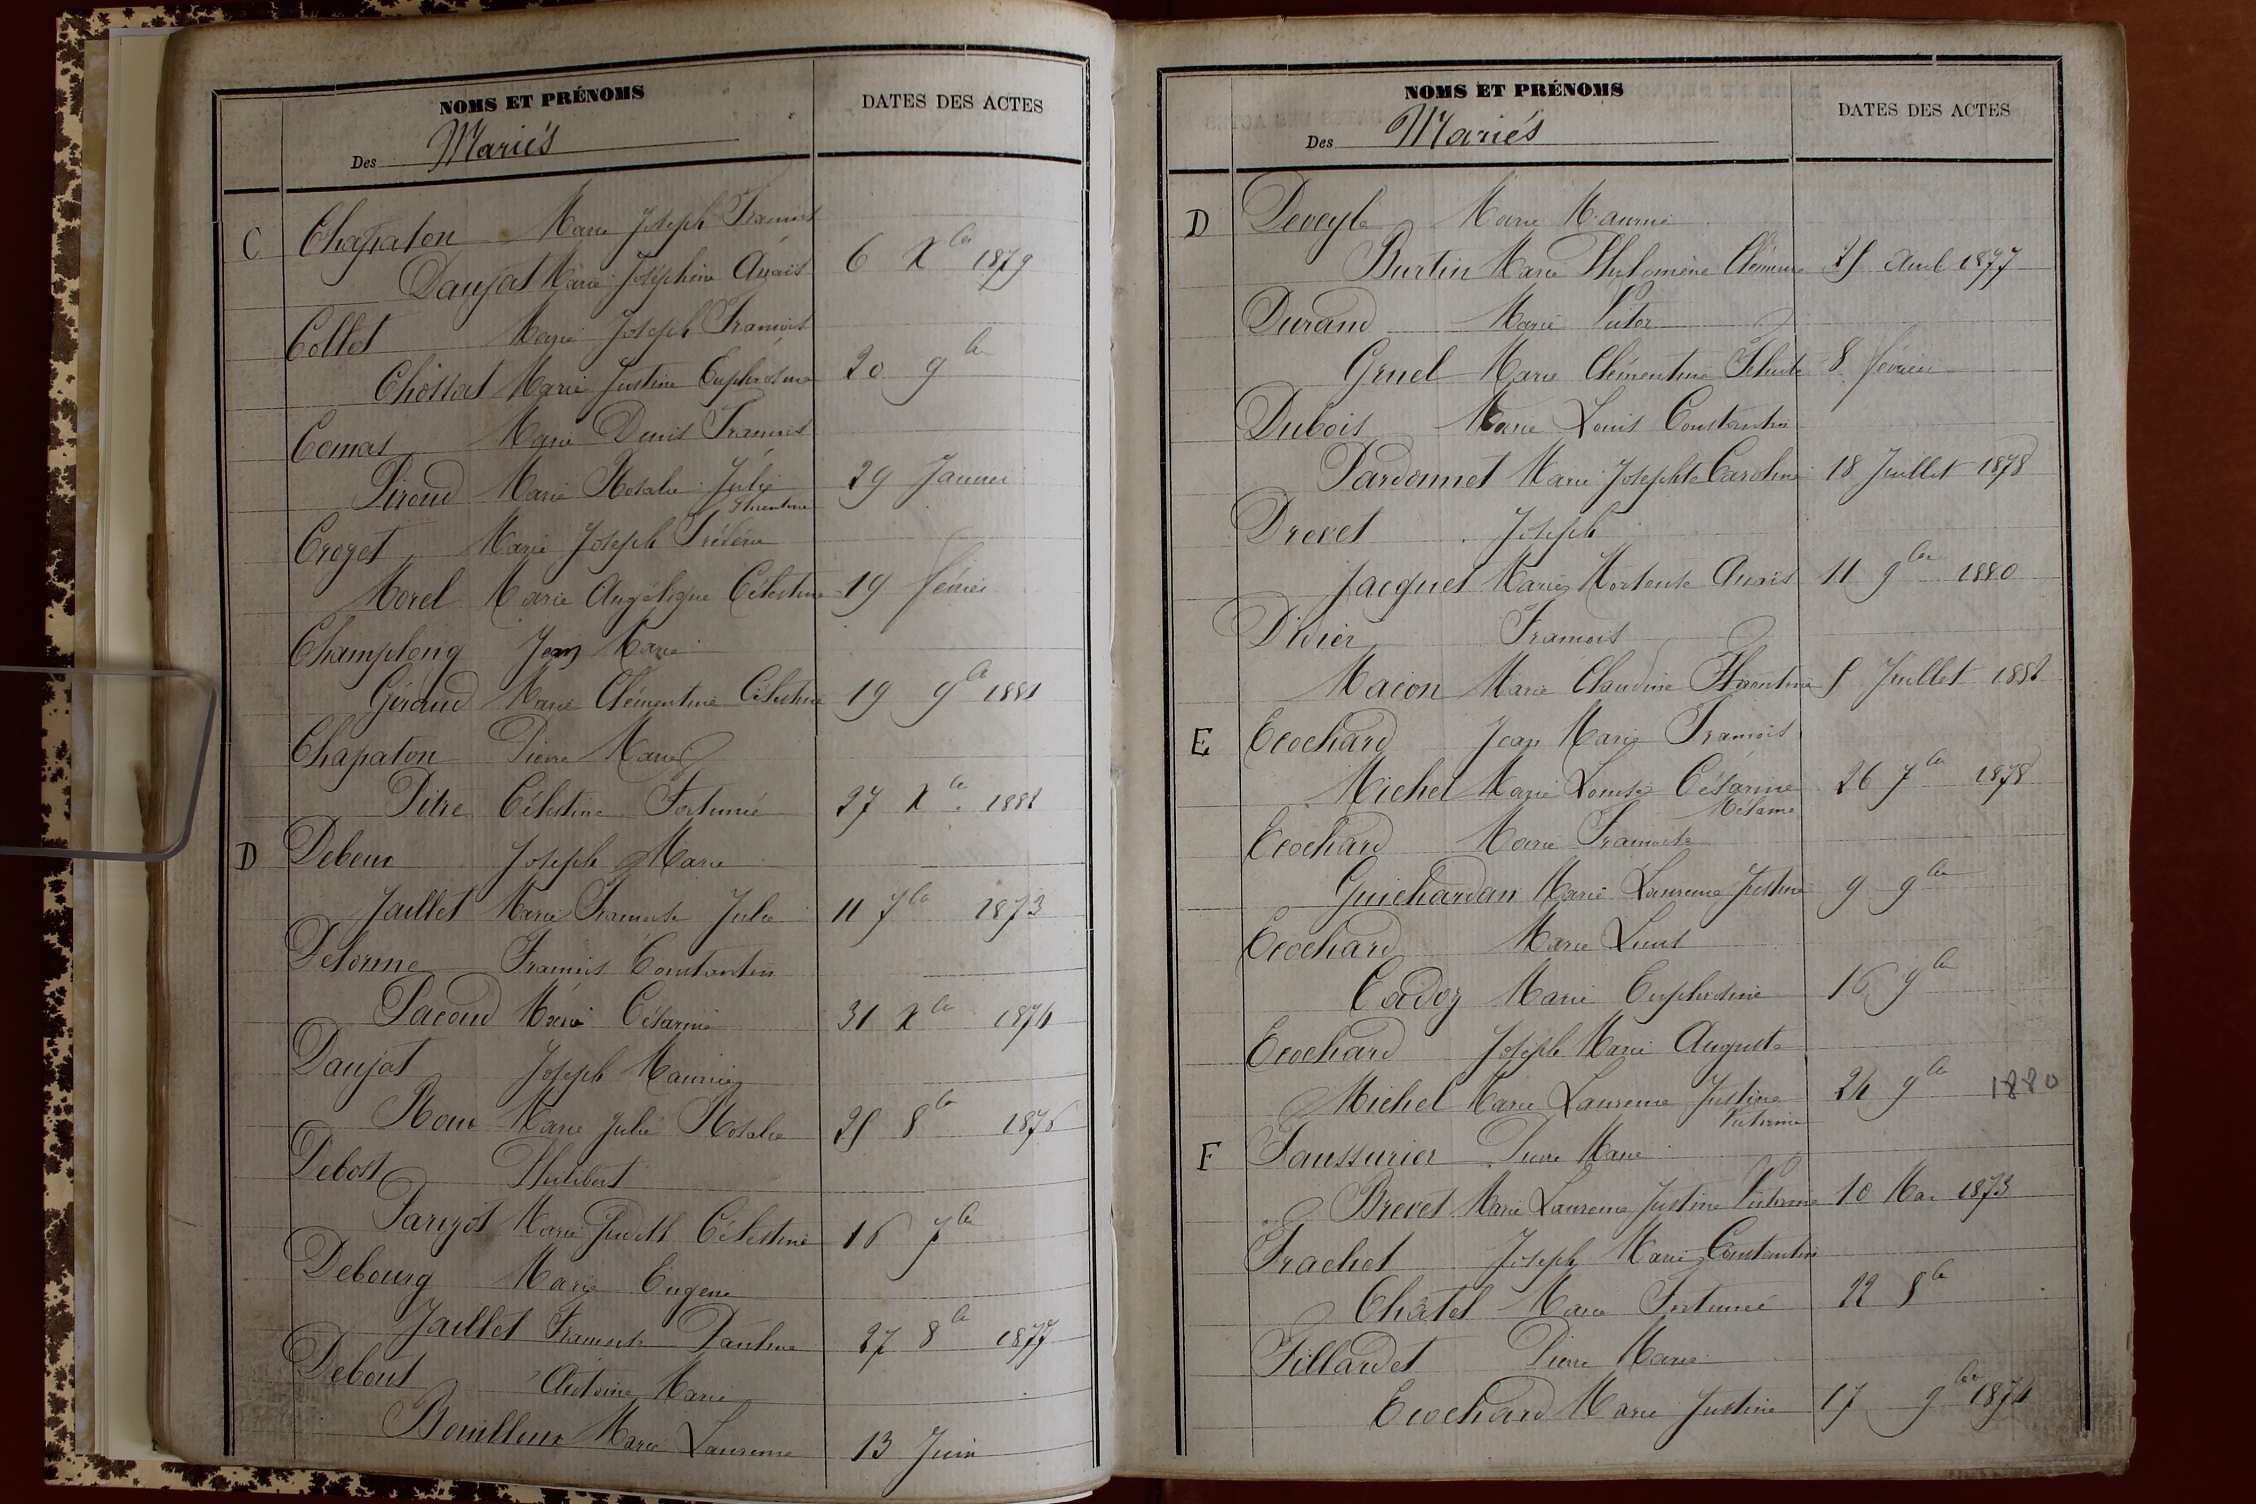 NOMS ET PRÉNOMS
DATES DES ACTES
Des Mariés
C Chapaton Marie Joseph François
Daujat Marie Joséphine Anaïs 6 Xbre 1879
Collet Marie Joseph François
Chossat Marie Justine Euphrosine 20 9bre
Comas Marie Denis François
Piroud Marie Rosalie Julie 29 Janvier
Florentine
Crozet Marie Joseph Frédéric
Morel Marie Angélique Célestine 19 février
Champlong Jean Marie
Giraud Marie Clémentine Célestine 19 9bre 1881
Chapaton Pierre Marie
Pitre Célestine Fortunée 27 Xbre 1881
D Debeur Joseph Marie
Jaillet Marie Françoise Julie 11 7bre 1873
Delorme François Constantin
Pacoud Marie Césarine 31 Xbre 1874
Daujat Joseph Maurice
Roux Marie Julie Rosalie 25 8bre 1876
Debost Philibert
Parizot Marie Judith Célestine 16 7bre
Debourg Marie Eugène
Jaillet Françoise Pauline 27 8bre 1877
Debout Antoine Marie
Bouilleux Marie Laurence 13 Juin
NOMS ET PRÉNOMS
DATES DES ACTES
Des Mariés
D Deveyle Marie Maurice
Burtin Marie Philomène Clémence 25 Avril 1877
Durand Marie Victor
Gruel Marie Clémentine Félicité 8 février
Dubois Marie Louis Constantin
Pardonnet Marie Josephte Caroline 18 Juillet 1878
Drevet Joseph
Jacquet Marie Hortense Anaïs 11 9bre 1880
Didier François
Macon Marie Claudine Florentine 5 Juillet 1881
E Ecochard Jean Marie François
Michel Marie Louise Césarine 26 7bre 1878
Mélanie
Ecochard Marie François
Guichardan Marie Laurence Justine 9 9bre
Ecochard Marie Louis
Cadoz Marie Euphrosine 16 9bre
Ecochard Joseph Marie Auguste
Michel Marie Laurence Justine 24 9bre 1880
Victorine
F Faussurier Pierre Marie
Brevet Marie Laurence Justine Victorine 10 Mai 1873
Frachet Joseph Marie Constantin
Chatel Marie Fortunée 22 8bre
Fillardet Pierre Marie
Ecochard Marie Justine 17 9bre 1874